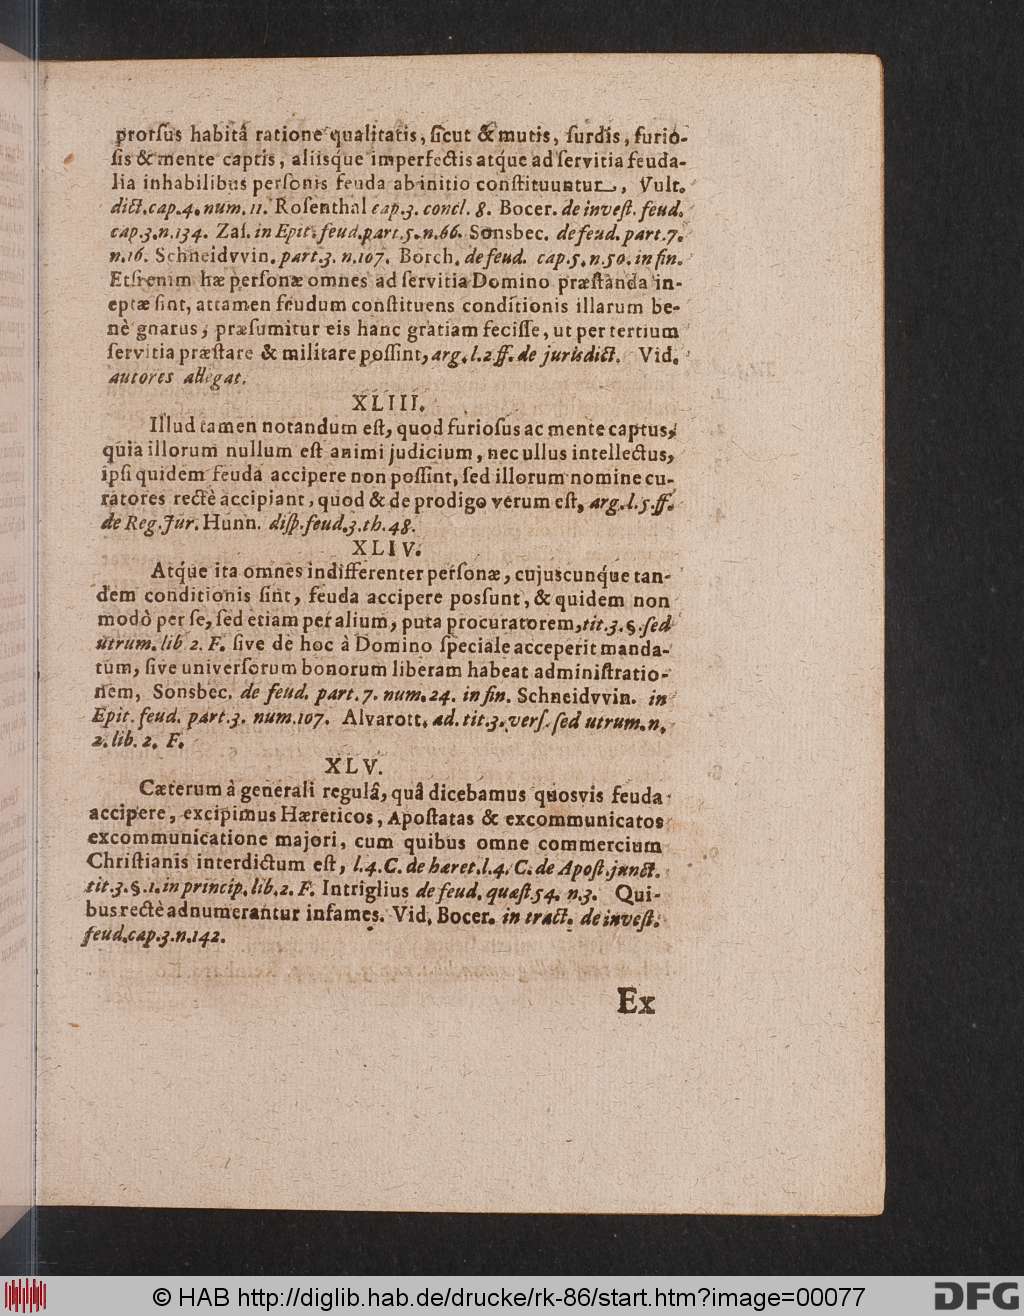 prorſus habitâ ratione qualitatis, ſicut & mutis, ſurdis, furio-
ſis & mente captis, aliisq́ue imperfectis atq́ue ad ſervitia feuda-
lia inhabilibus perſonis feuda ab initio conſtituuntur, Vult.
dict. cap. 4. num. 11. Roſenthal cap. 3. concl. 8. Bocer. de inveſt. feud.
cap. 3. n. 134. Zaſ. in Epit. feud. part. 5. n. 66. Sonsbec. de feud. part. 7.
n. 16. Schneidvvin. part. 3. n. 107. Borch. de feud. cap. 5. n. 50. in fin.
Etſi enim hæ perſonæ omnes ad ſervitia Domino præſtanda in-
eptæ ſint, attamen feudum conſtituens conditionis illarum be-
nè gnarus, præſumitur eis hanc gratiam feciſſe, ut per tertium
ſervitia præſtare & militare poſſint, arg. l. 2. ff. de jurisdict. Vid.
autores allegat.
XLIII.
Illud tamen notandum eſt, quod furioſus ac mente captus,
quia illorum nullum eſt animi judicium, nec ullus intellectus,
ipſi quidem feuda accipere non poſſint, ſed illorum nomine cu-
ratores rectè accipiant, quod & de prodigo verum eſt, arg. l. 5. ff.
de Reg. Jur. Hunn. diſp. feud. 3. th. 48.
XLIV.
Atq́ue ita omnes indifferenter perſonæ, cujuscunq́ue tan-
dem conditionis ſint, feuda accipere posſunt, & quidem non
modò per ſe, ſed etiam per alium, puta procuratorem, tit. 3. §. ſed
utrum. lib 2. F. ſive de hoc à Domino ſpeciale acceperit manda-
tum, ſive univerſorum bonorum liberam habeat adminiſtratio-
nem, Sonsbec. de feud. part. 7. num. 24. in fin. Schneidvvin. in
Epit. feud. part. 3. num. 107. Alvarott. ad. tit. 3. verſ. ſed utrum. n.
2. lib. 2. F.
XLV.
Cæterum à generali regulâ, quâ dicebamus quosvis feuda
accipere, excipimus Hæreticos, Apoſtatas & excommunicatos
excommunicatione majori, cum quibus omne commercium
Chriſtianis interdictum eſt, l. 4. C. de hæret. l. 4. C. de Apoſt. junct.
tit. 3. §. 1. in princip. lib. 2. F. Intriglius de feud. quæſt 54. n. 3. Qui-
bus rectè adnumerantur infames. Vid. Bocer. in tract. de inveſt.
feud. cap. 3. n. 142.
Ex
© HAB http://diglib.hab.de/drucke/rk-86/start.htm?image=00077
DFG